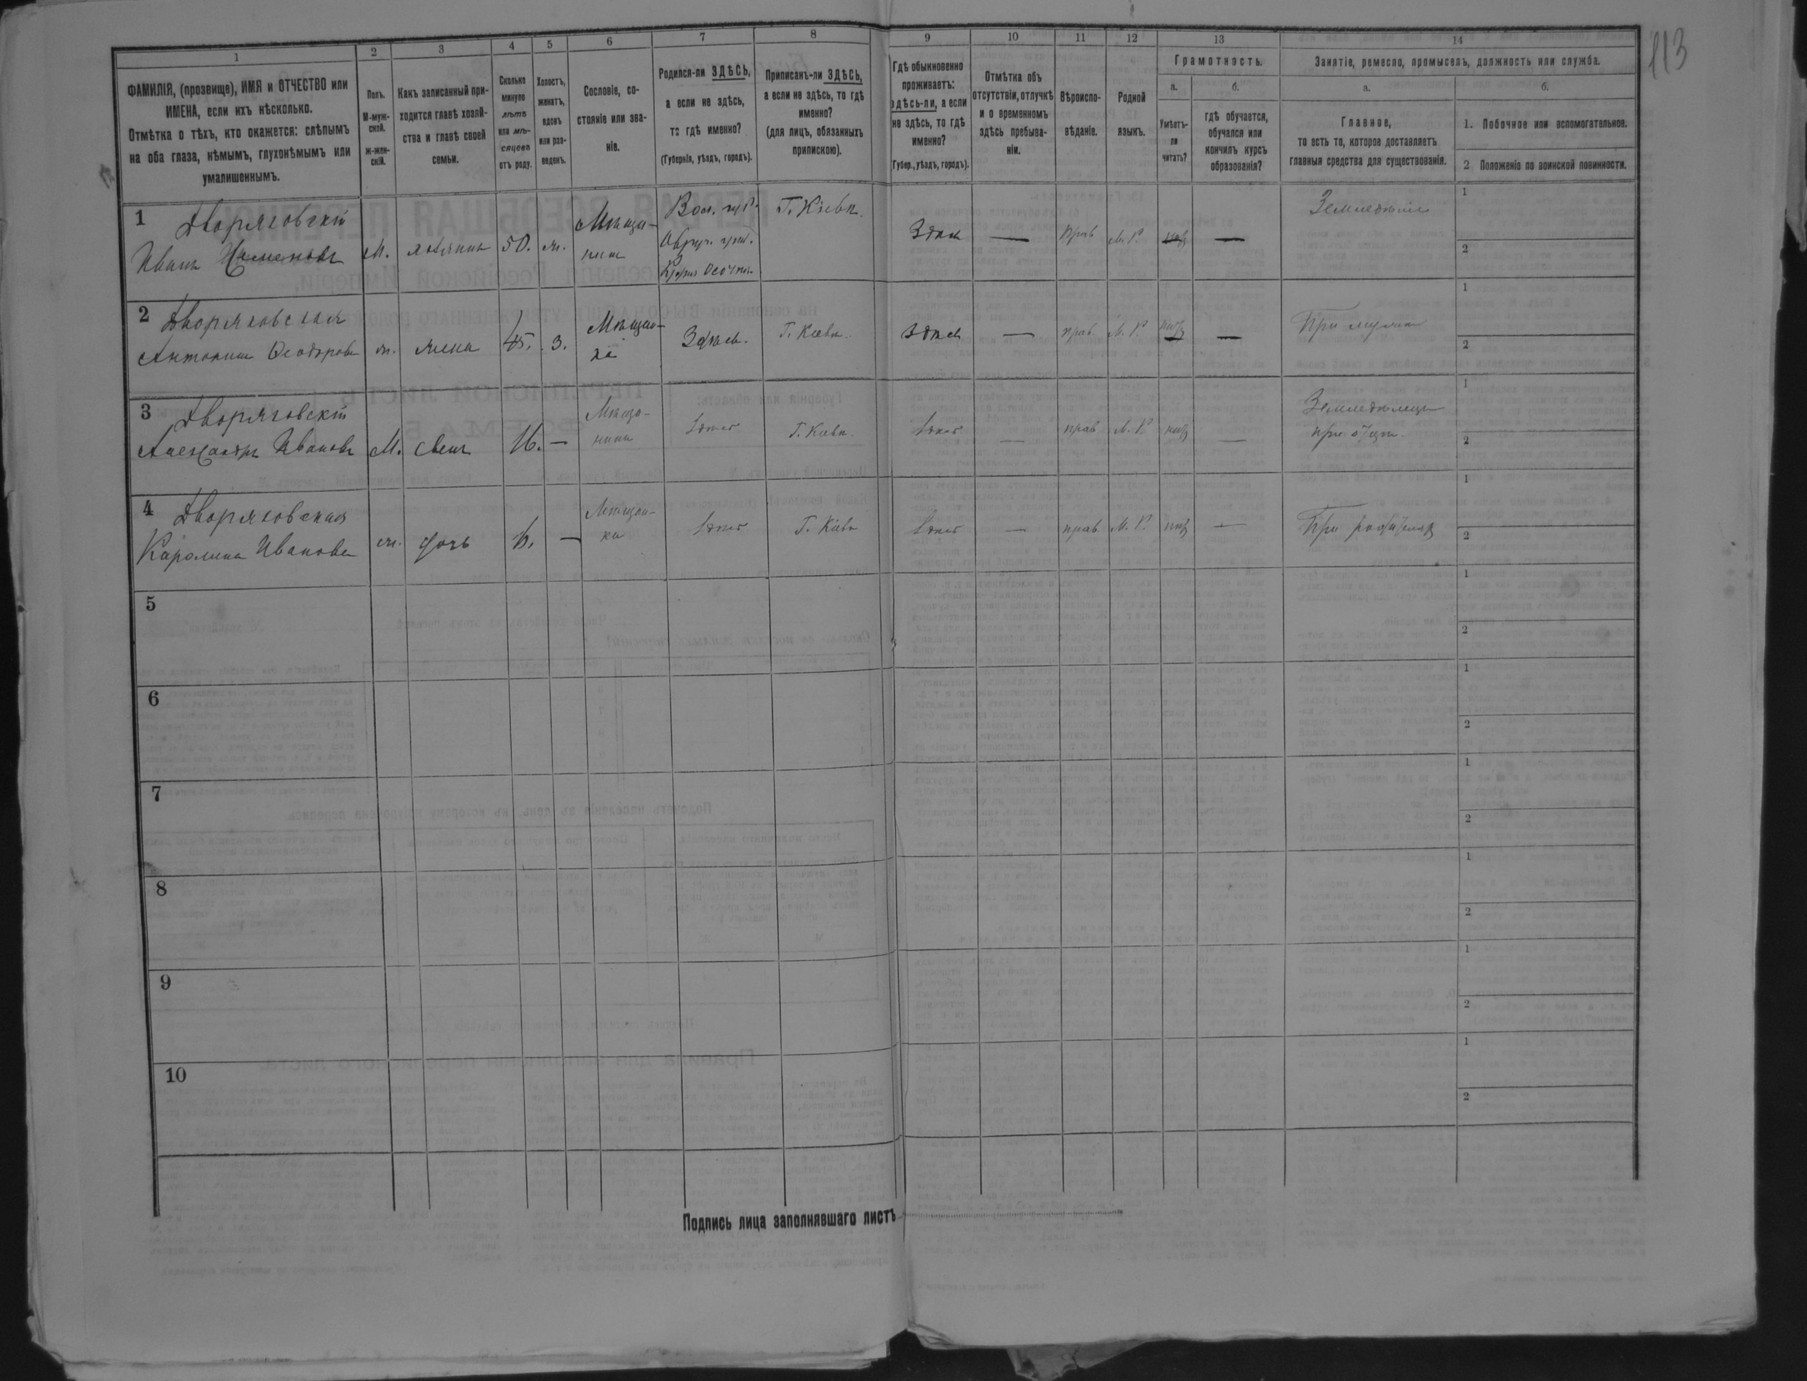 113
1
2
3
4
5
6
7
8
9
10
11
12
13
14
ФАМИЛІЯ, (прозвище), ИМЯ и ОТЧЕСТВО или
ИМЕНА, если ихъ нѣсколько.
Отмѣтка о тѣхъ, кто окажется: слѣпымъ
на оба глаза, нѣмымъ, глухонѣмымъ или
умалишеннымъ.
Полъ.
М-муж-
ской.
ж-жен-
скій.
Какъ записанный при-
ходится главѣ хозяй-
ства и главѣ своей
семьи.
Сколько
минуло
лѣтъ
или мѣ-
сяцевъ
отъ роду.
Холостъ,
женатъ,
вдовъ
или раз-
веденъ.
Сословіе, со-
стояніе или зва-
ніе.
Родился-ли ЗДѢСЬ,
а если не здѣсь,
то гдѣ именно?
(Губернія, уѣздъ, городъ).
Приписанъ-ли ЗДѢСЬ,
а если не здѣсь, то гдѣ
именно?
(для лицъ, обязанныхъ
припискою).
Гдѣ обыкновенно
проживаетъ:
здѣсь-ли, а если
не здѣсь, то гдѣ
именно?
(Губер., уѣздъ, городъ).
Отмѣтка объ
отсутствіи, отлучкѣ
и о временномъ
здѣсь пребыва-
ніи.
Вѣроиспо-
вѣданіе.
Родной
языкъ.
Грамотность.
а.
Умѣетъ-
ли
читать?
б.
гдѣ обучается,
обучался или
кончилъ курсъ
образованія?
Занятія, ремесло, промыселъ, должность или служба.
а.
Главное,
то есть то, которое доставляетъ
главныя средства для существованія.
б.
1. Побочное или вспомогательное.
2 Положеніе по воинской повинности.
1 Дворяговскій
Иванъ
М. хозяинъ 50. ж. Мѣща-
нин
Вол. губ.
Г. Кіевъ.
Здѣсь — прав М. Р. —
1
2
2 Дворяговская
Антонина Ѳеодорова ж. жена 45. з. Мѣщан-
ка
Здѣсь. Г. Кіевъ. здѣсь — прав М. Р. —
При мужѣ
1
2
3 Дворяговскій
Александръ Ивановъ М. сынъ 16. — Мѣща-
нинъ
Здѣсь Г. Кіевъ Здѣсь — прав М. Р. —
при отцѣ.
1
2
4 Дворяговская
Каролина Иванова ж. дочь — Мѣщан-
ка
Здѣсь Г. Кіевъ Здѣсь — прав М. Р. —
При родителяхъ
1
2
5
1
2
6
1
2
7
1
2
8
1
2
9
1
2
10
1
2
Подпись лица заполнявшаго листъ